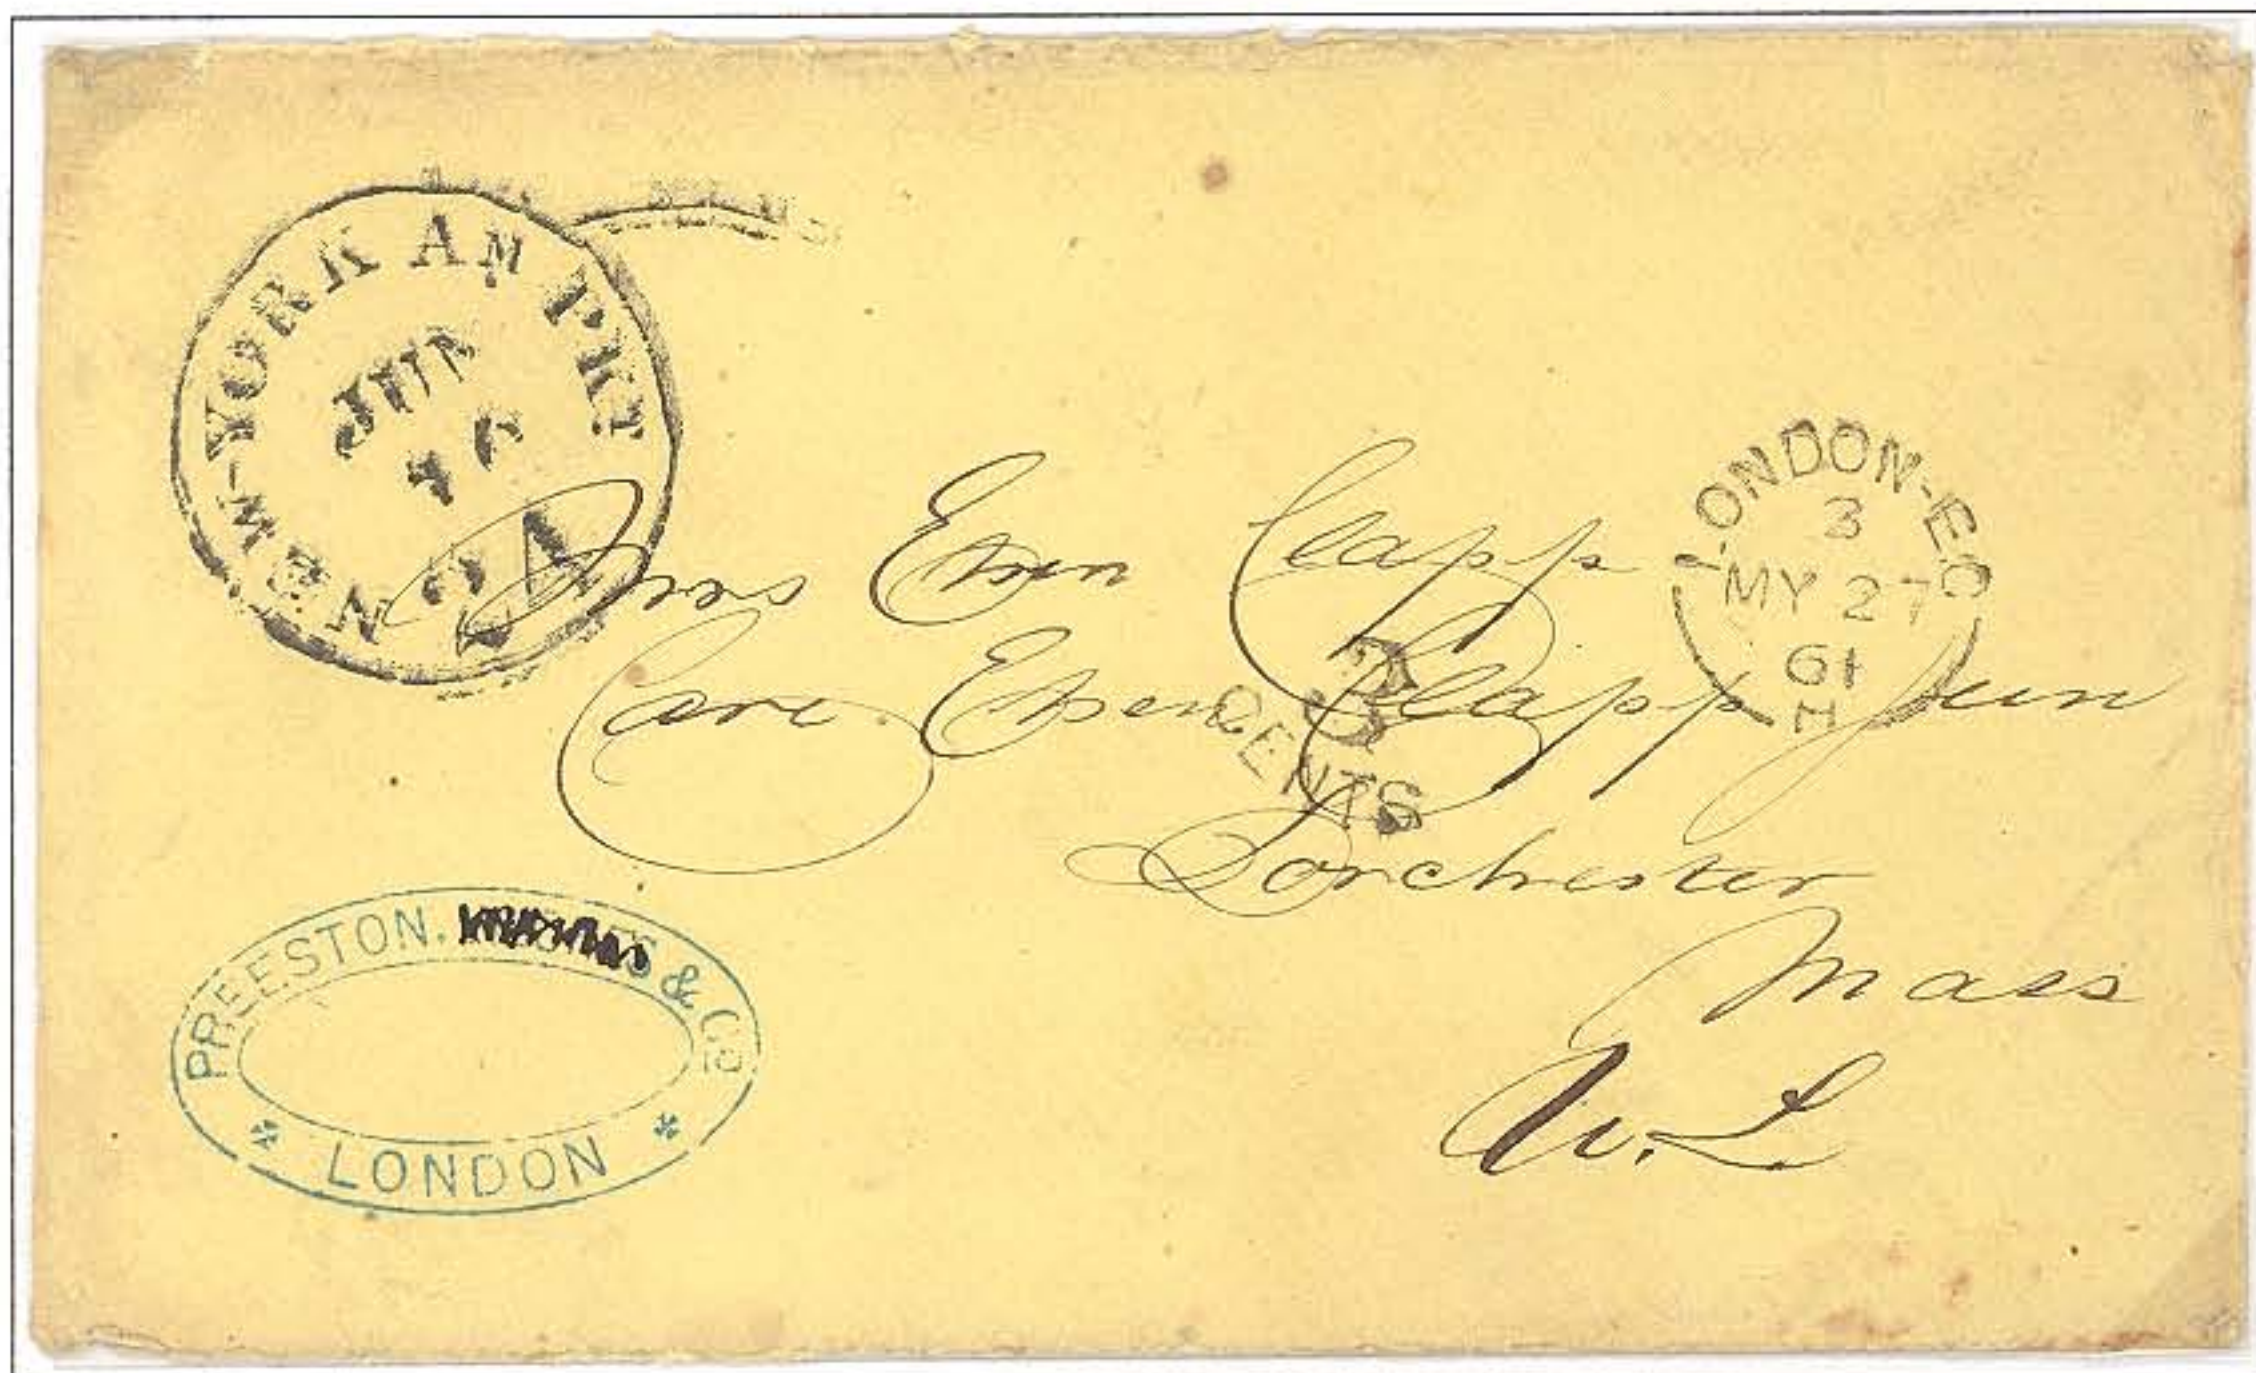 NEW-YORK AM PKT
JUN
16
24
LONDON-EC
3
MY 27
61
H
Clapp
3
CENTS
Care Eben Clapp Jun
Dorchester
Mass
PREESTON. & Co
LONDON